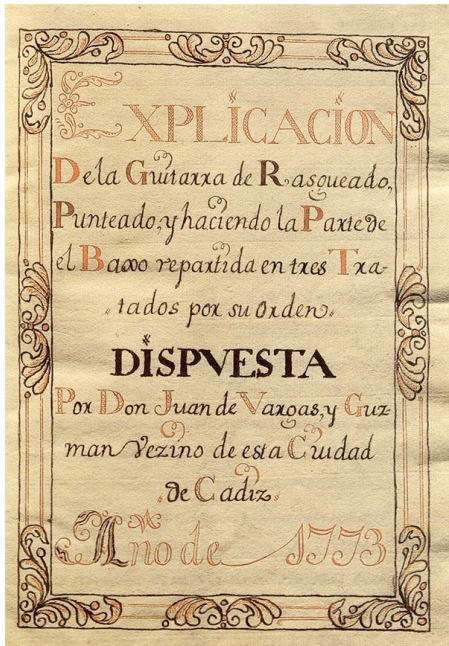 EXPLICACION
De la Guitarra de Rasgueado,
Punteado, y haciendo la Parte de
el Baxo repartida en tres Tra-
tados por su orden.
DISPVESTA
Por Don Juan de Vargas, y Guz-
man Vezino de esta Ciudad
de Cadiz.
Año de 1773